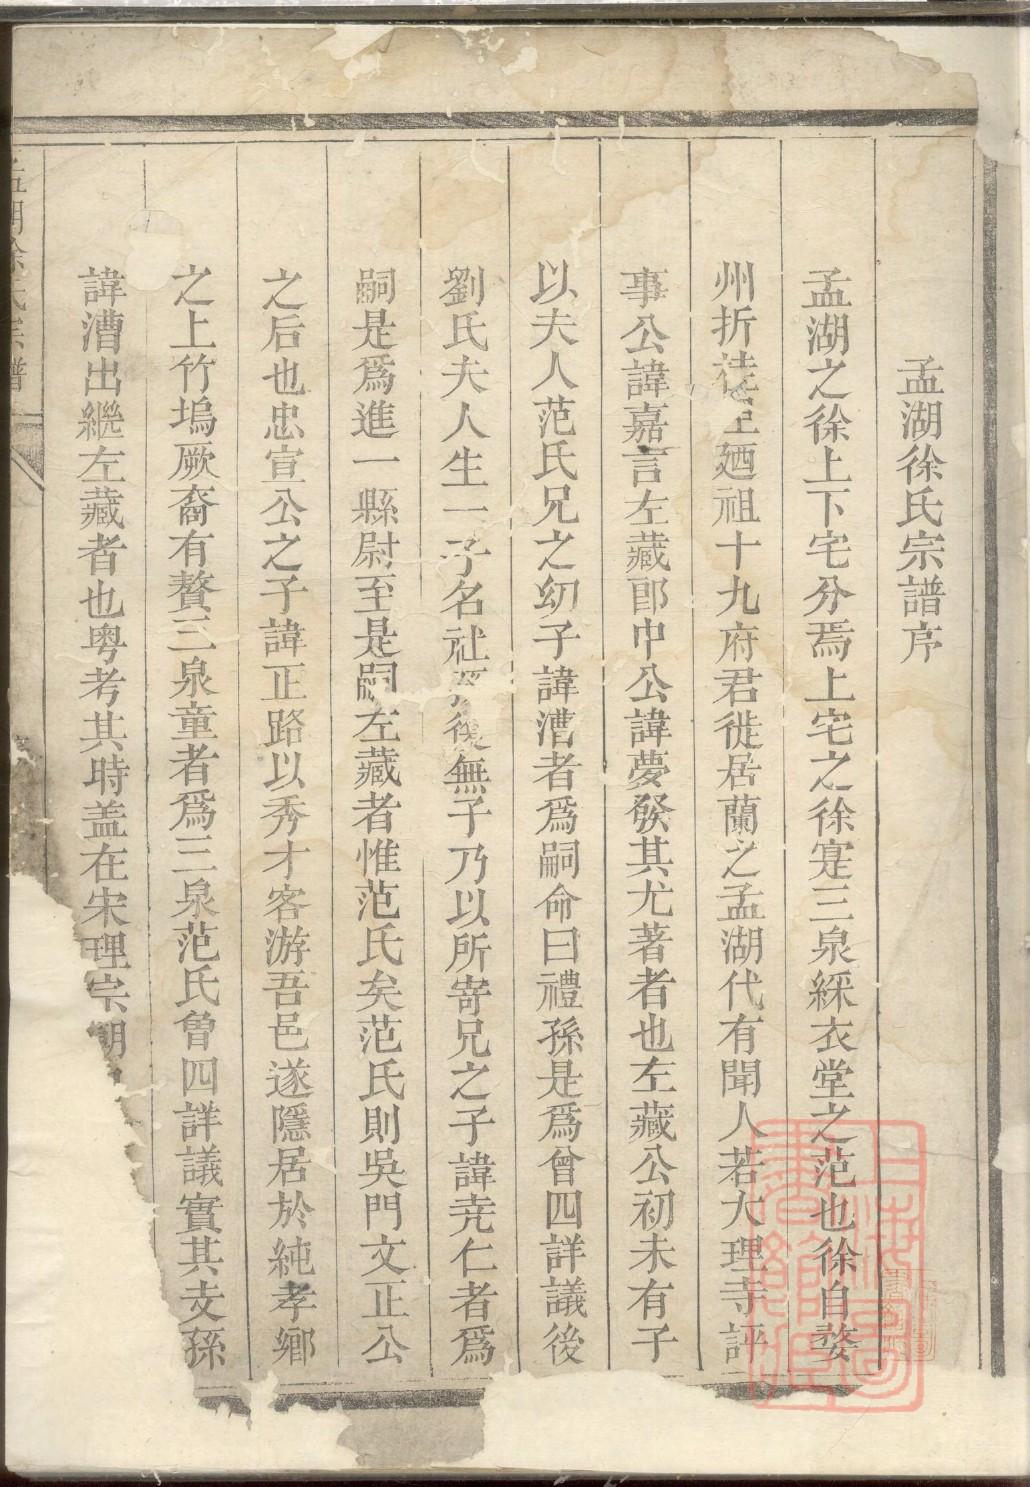 孟湖徐氏宗譜序
孟湖之徐上下宅分焉上宅之徐寔三泉綵衣堂之范也徐自婺
州折桂里廼祖十九府君徙居蘭之孟湖代有聞人若大理寺評
事公諱嘉言左藏郎中公諱夢發其尤著者也左藏公初未有子
以夫人范氏兄之幼子諱漕者爲嗣命曰禮孫是爲曾四詳議後
劉氏夫人生一子名社孫後無子乃以所寄兄之子諱堯仁者爲
嗣是爲進一縣尉至是嗣左藏者惟范氏矣范氏則吳門文正公
之后也忠宣公之子諱正路以秀才客游吾邑遂隱居於純孝鄉
之上竹塢厥裔有贅三泉童者爲三泉范氏曾四詳議實其支孫
諱漕出繼左藏者也粵考其時盖在宋理宗朝
孟湖徐氏宗譜
上海圖書館藏